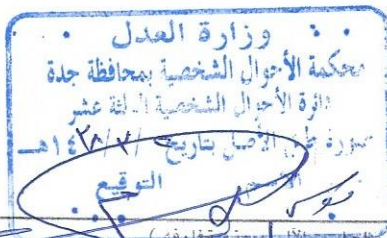 وزارة العدل
محكمة الأحوال الشخصية بمحافظة جدة
دائرة الأحوال الشخصية الثالثة عشر
صورة طبق الأصل بتاريخ / / ١٤هـ
الاسم التوقيع